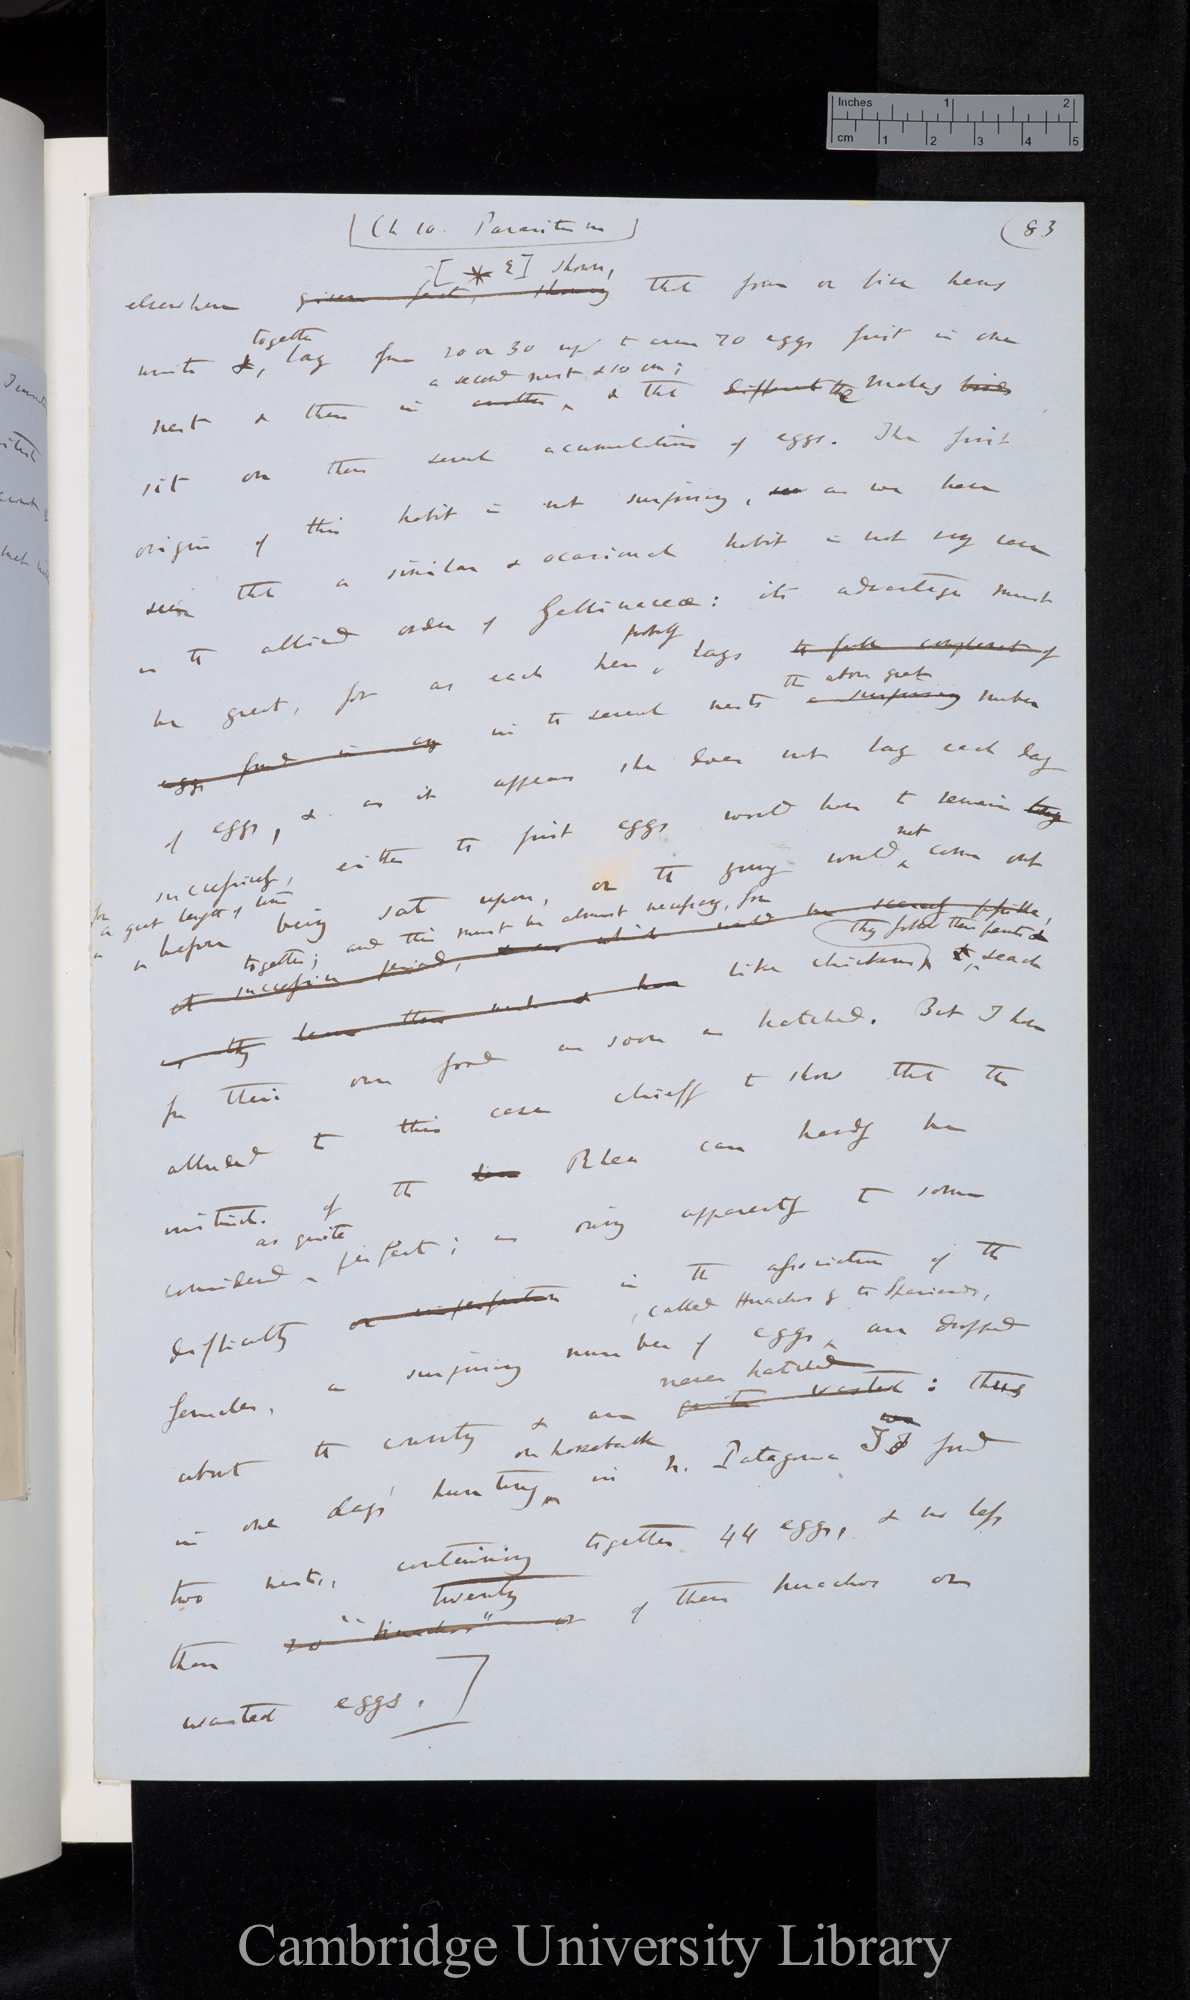 Inches 1 2
cm 1 2 3 4 5
[Ch 10. Parasitism]
(83
[* 2] shown,
elsewhere given facts, showing that four or five hens
together
unite &, lay from 20 or 30 up to even 70 eggs first in one
a second nest & so on;
nest & then in another & that different the males birds
sit on these several accumulations of eggs. The first
origin of this habit is not surprising, as we have
seen that a similar & occasional habit is not very rare
in the allied order of Gallinaceæ: its advantage must
probably
be great, for as each hen, lays the full complement of
the above great
eggs found in in the several nests a surprising number
of eggs, & as it appears she does not lay each day
successively, either the first eggs would have to remain
not
for a great length of time before being sat upon, or the young would come out
together; and this must be almost necessary, for
at successive periods, which would be scarcely possible,
they follow their parents &
like chickens, & seach
for their own food as soon as hatched. But I have
alluded to this case chiefly to show that the
instinct of the Rhea can hardly be
as quite
considered perfect; as owing apparently to some
difficulty or imperfection in the association of the
, called Huachos by the Spaniards,
females, a surprising number of eggs are dropped
never hatched
about the country & are quite wasted: thus
on horseback
in one days' hunting, in N. Patagonia I found
two nests, containing together 44 eggs, & no less
twenty
than 20 "huachos" or of these huachos or
wasted eggs.]
Cambridge University Library